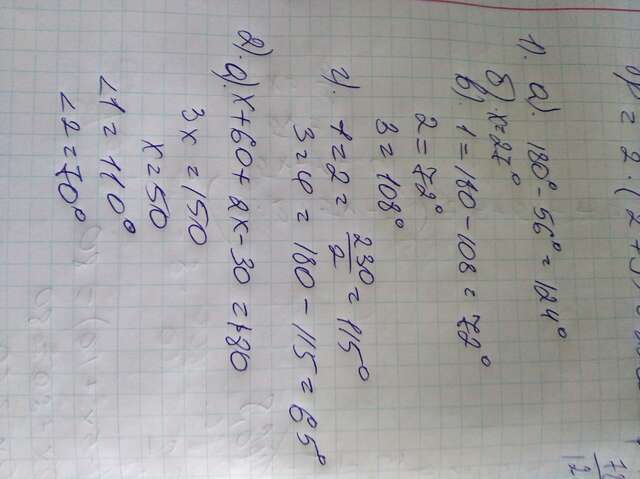 1). а). 180° - 56° = 124°
б). x = 27°
в). 1 = 180 - 108 = 72°
2 = 72°
3 = 108°
4). 1 = 2 = 230/2 = 115°
3 = 4 = 180 - 115 = 65°
2). а). x + 60 + 2x - 30 = 180
3x = 150
x = 50
∠1 = 110°
∠2 = 70°